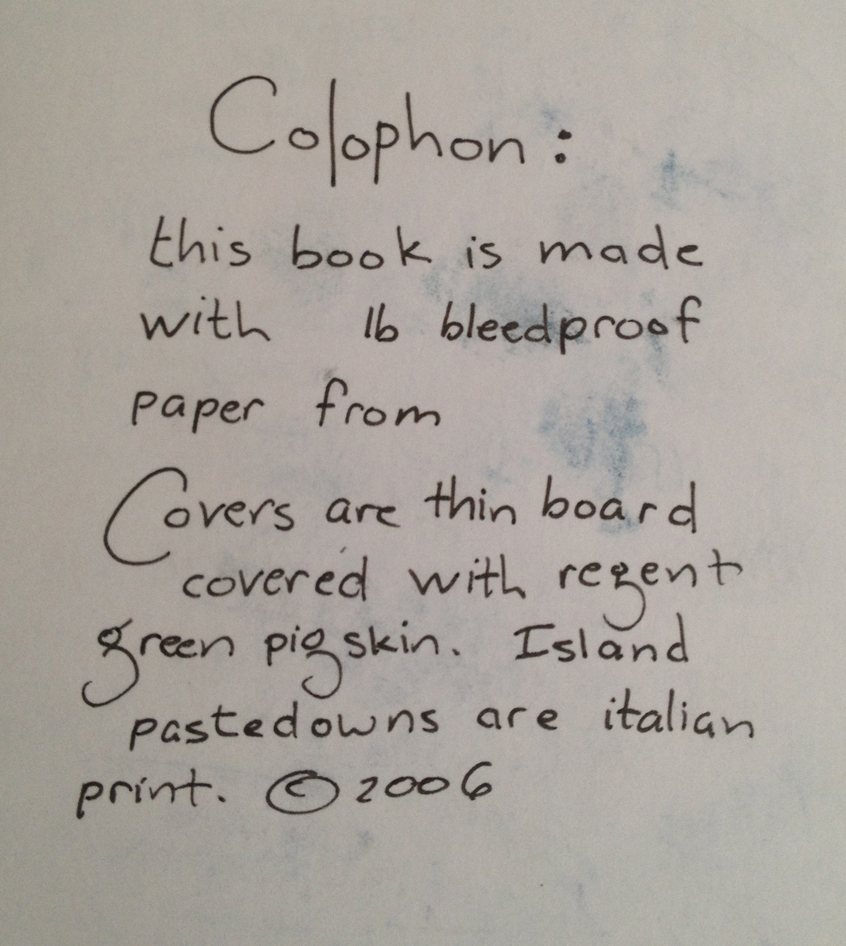 Colophon:
this book is made
with lb bleedproof
paper from
Covers are thin board
covered with regent
green pigskin. Island
pastedowns are italian
print. © 2006